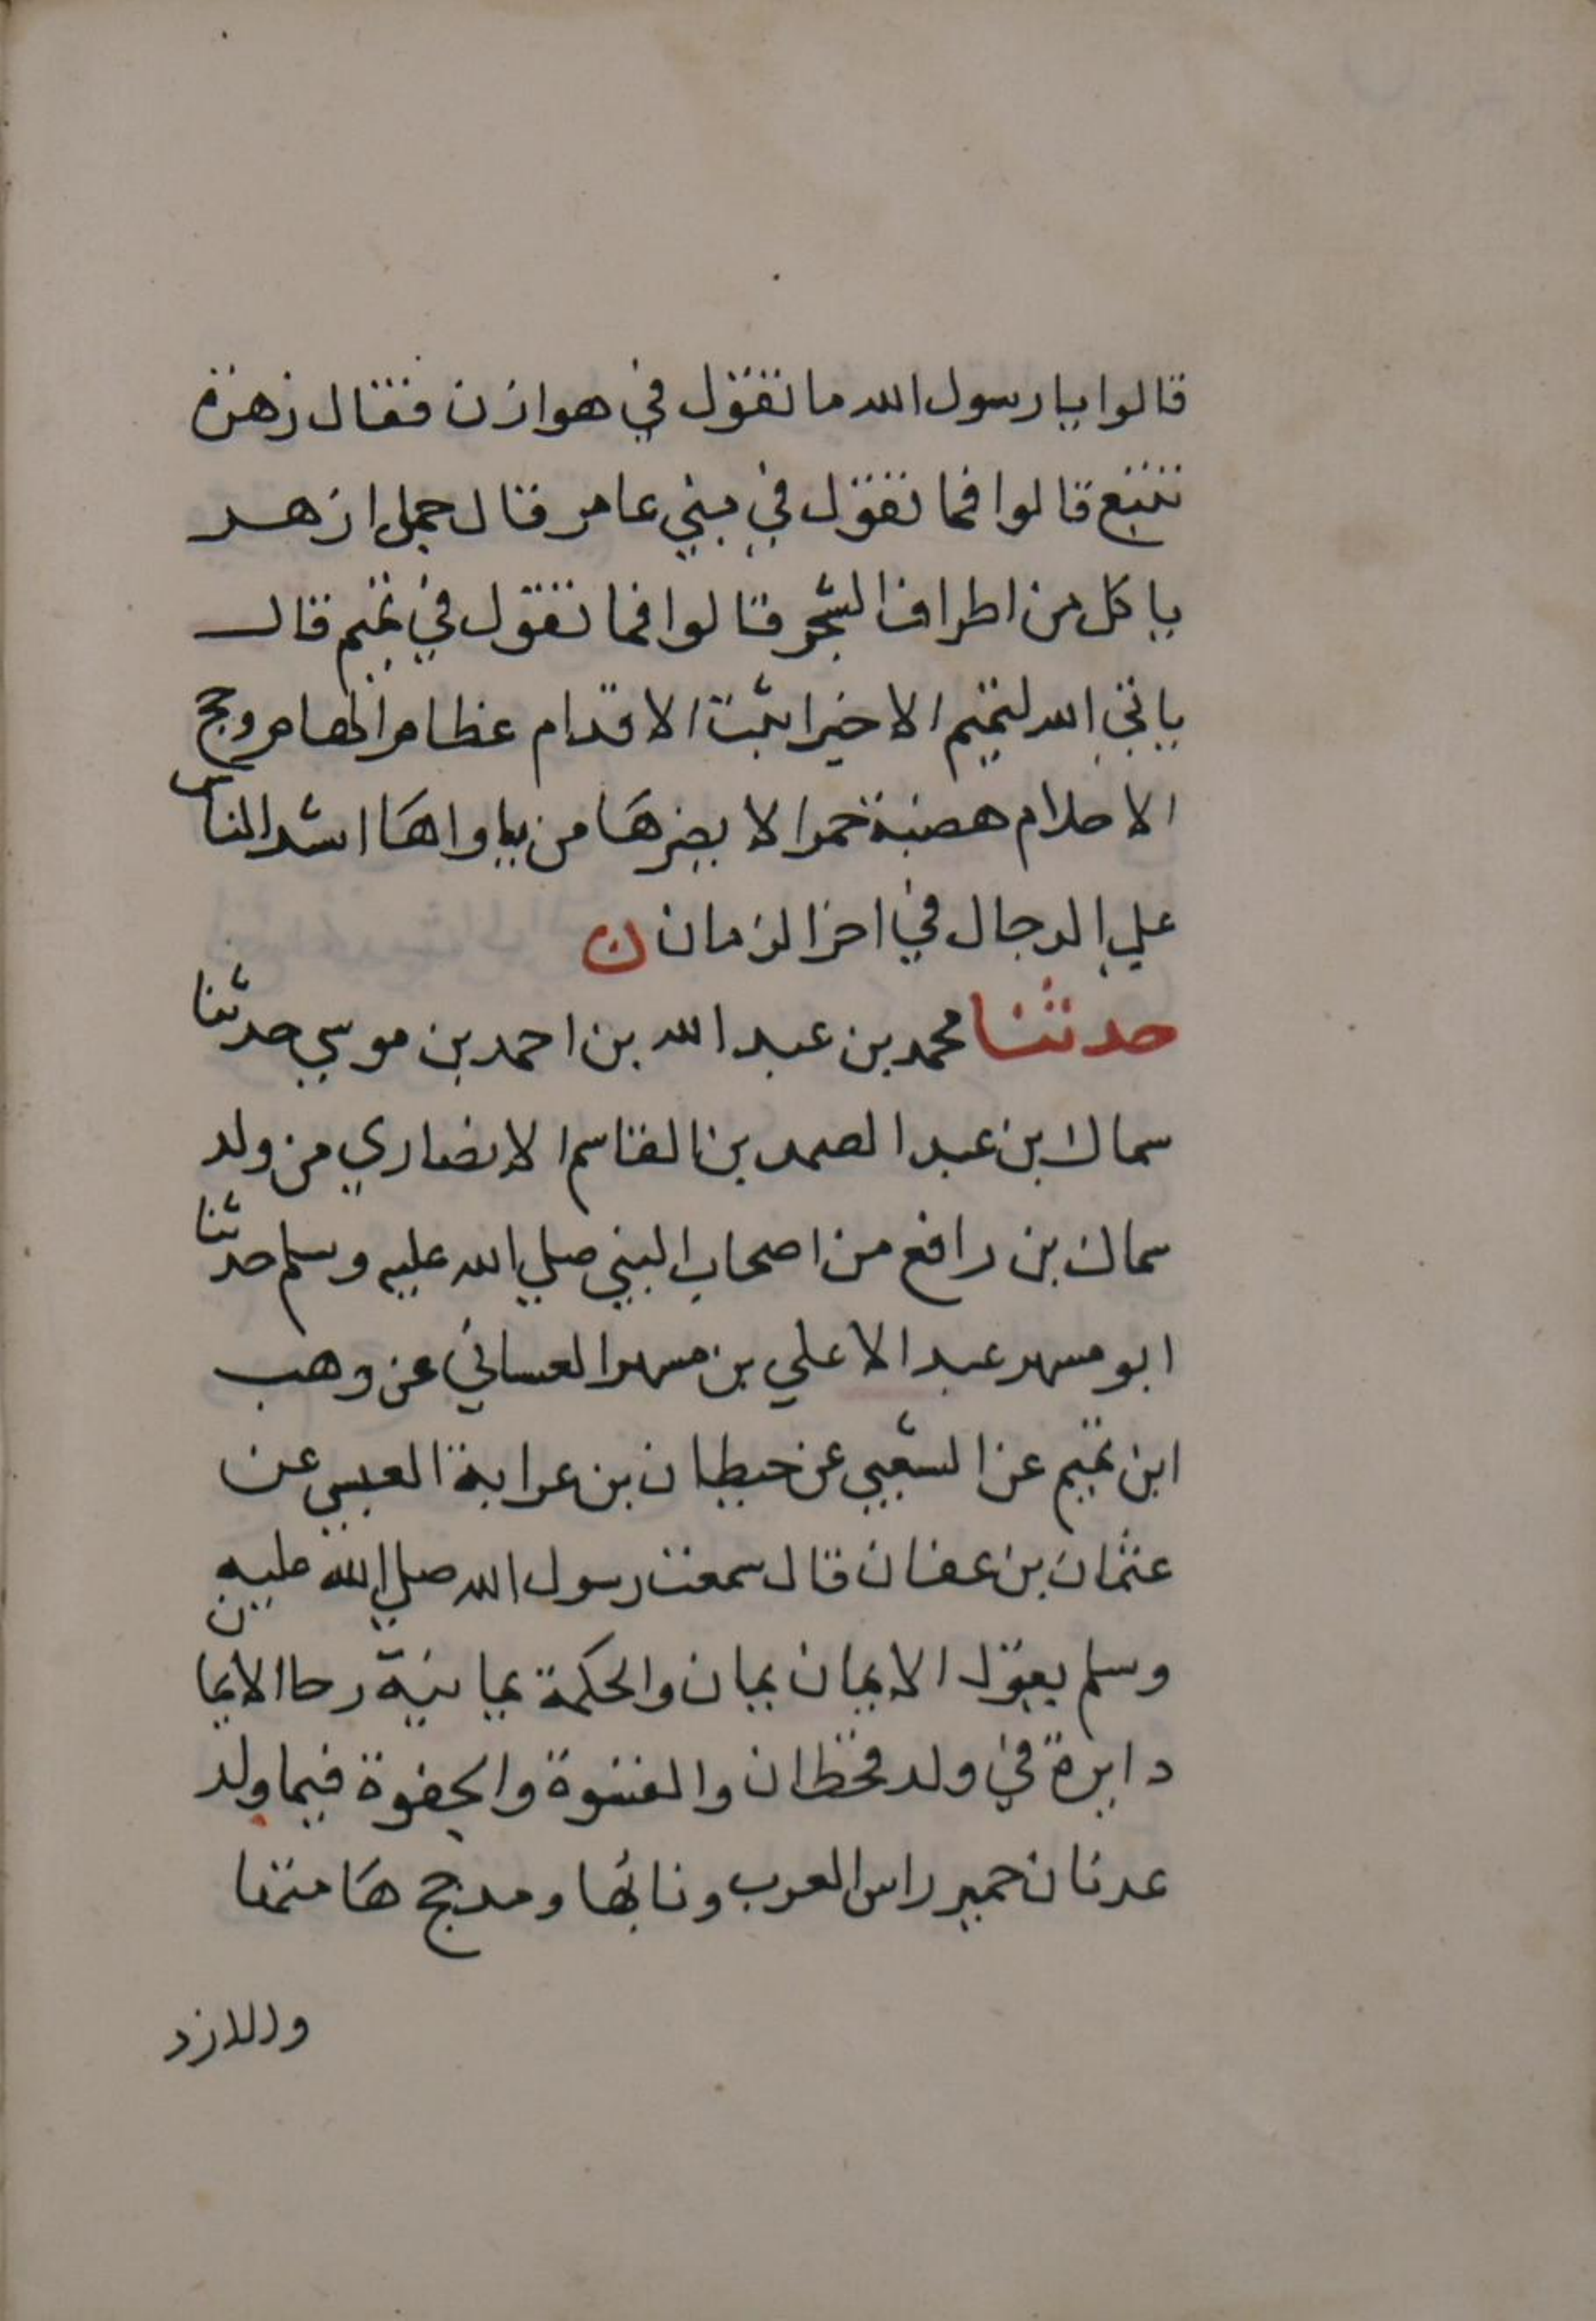 قالوا يا رسول الله ما تقول في هوازن فقال زهرة
تنبع قالوا فما تقول في بني عامر قال جمل ازهر
ياكل من اطراف الشجر قالوا فما تقول في تميم قال
ياتي الله لتميم الا خيرا ثبت الاقدام عظام الهام رجح
الاحلام هضبة حمرا لا يضرها من ياواها اشد الناس
علي الرجال في اخر الزمان ن
حدثنا محمد بن عبد الله بن احمد بن موسي حدثنا
سماك بن عبد الصمد بن القاسم الانصاري من ولد
سماك بن رافع من اصحاب النبي صلي الله عليه وسلم حدثنا
ابو مسهر عبد الاعلي بن مسهر الغساني عن وهب
ابن تميم عن الشعبي عن حيطان بن عرابة العبسي عن
عثمان بن عفان قال سمعت رسول الله صلي الله عليه
وسلم يقول الايمان يمان والحكمة يمانية رحا الايمان
دايرة في ولد قحطان والقسوة والجفوة فيما ولد
عدنان حمير راس العرب ونابها ومدحج هامتها
وللازد